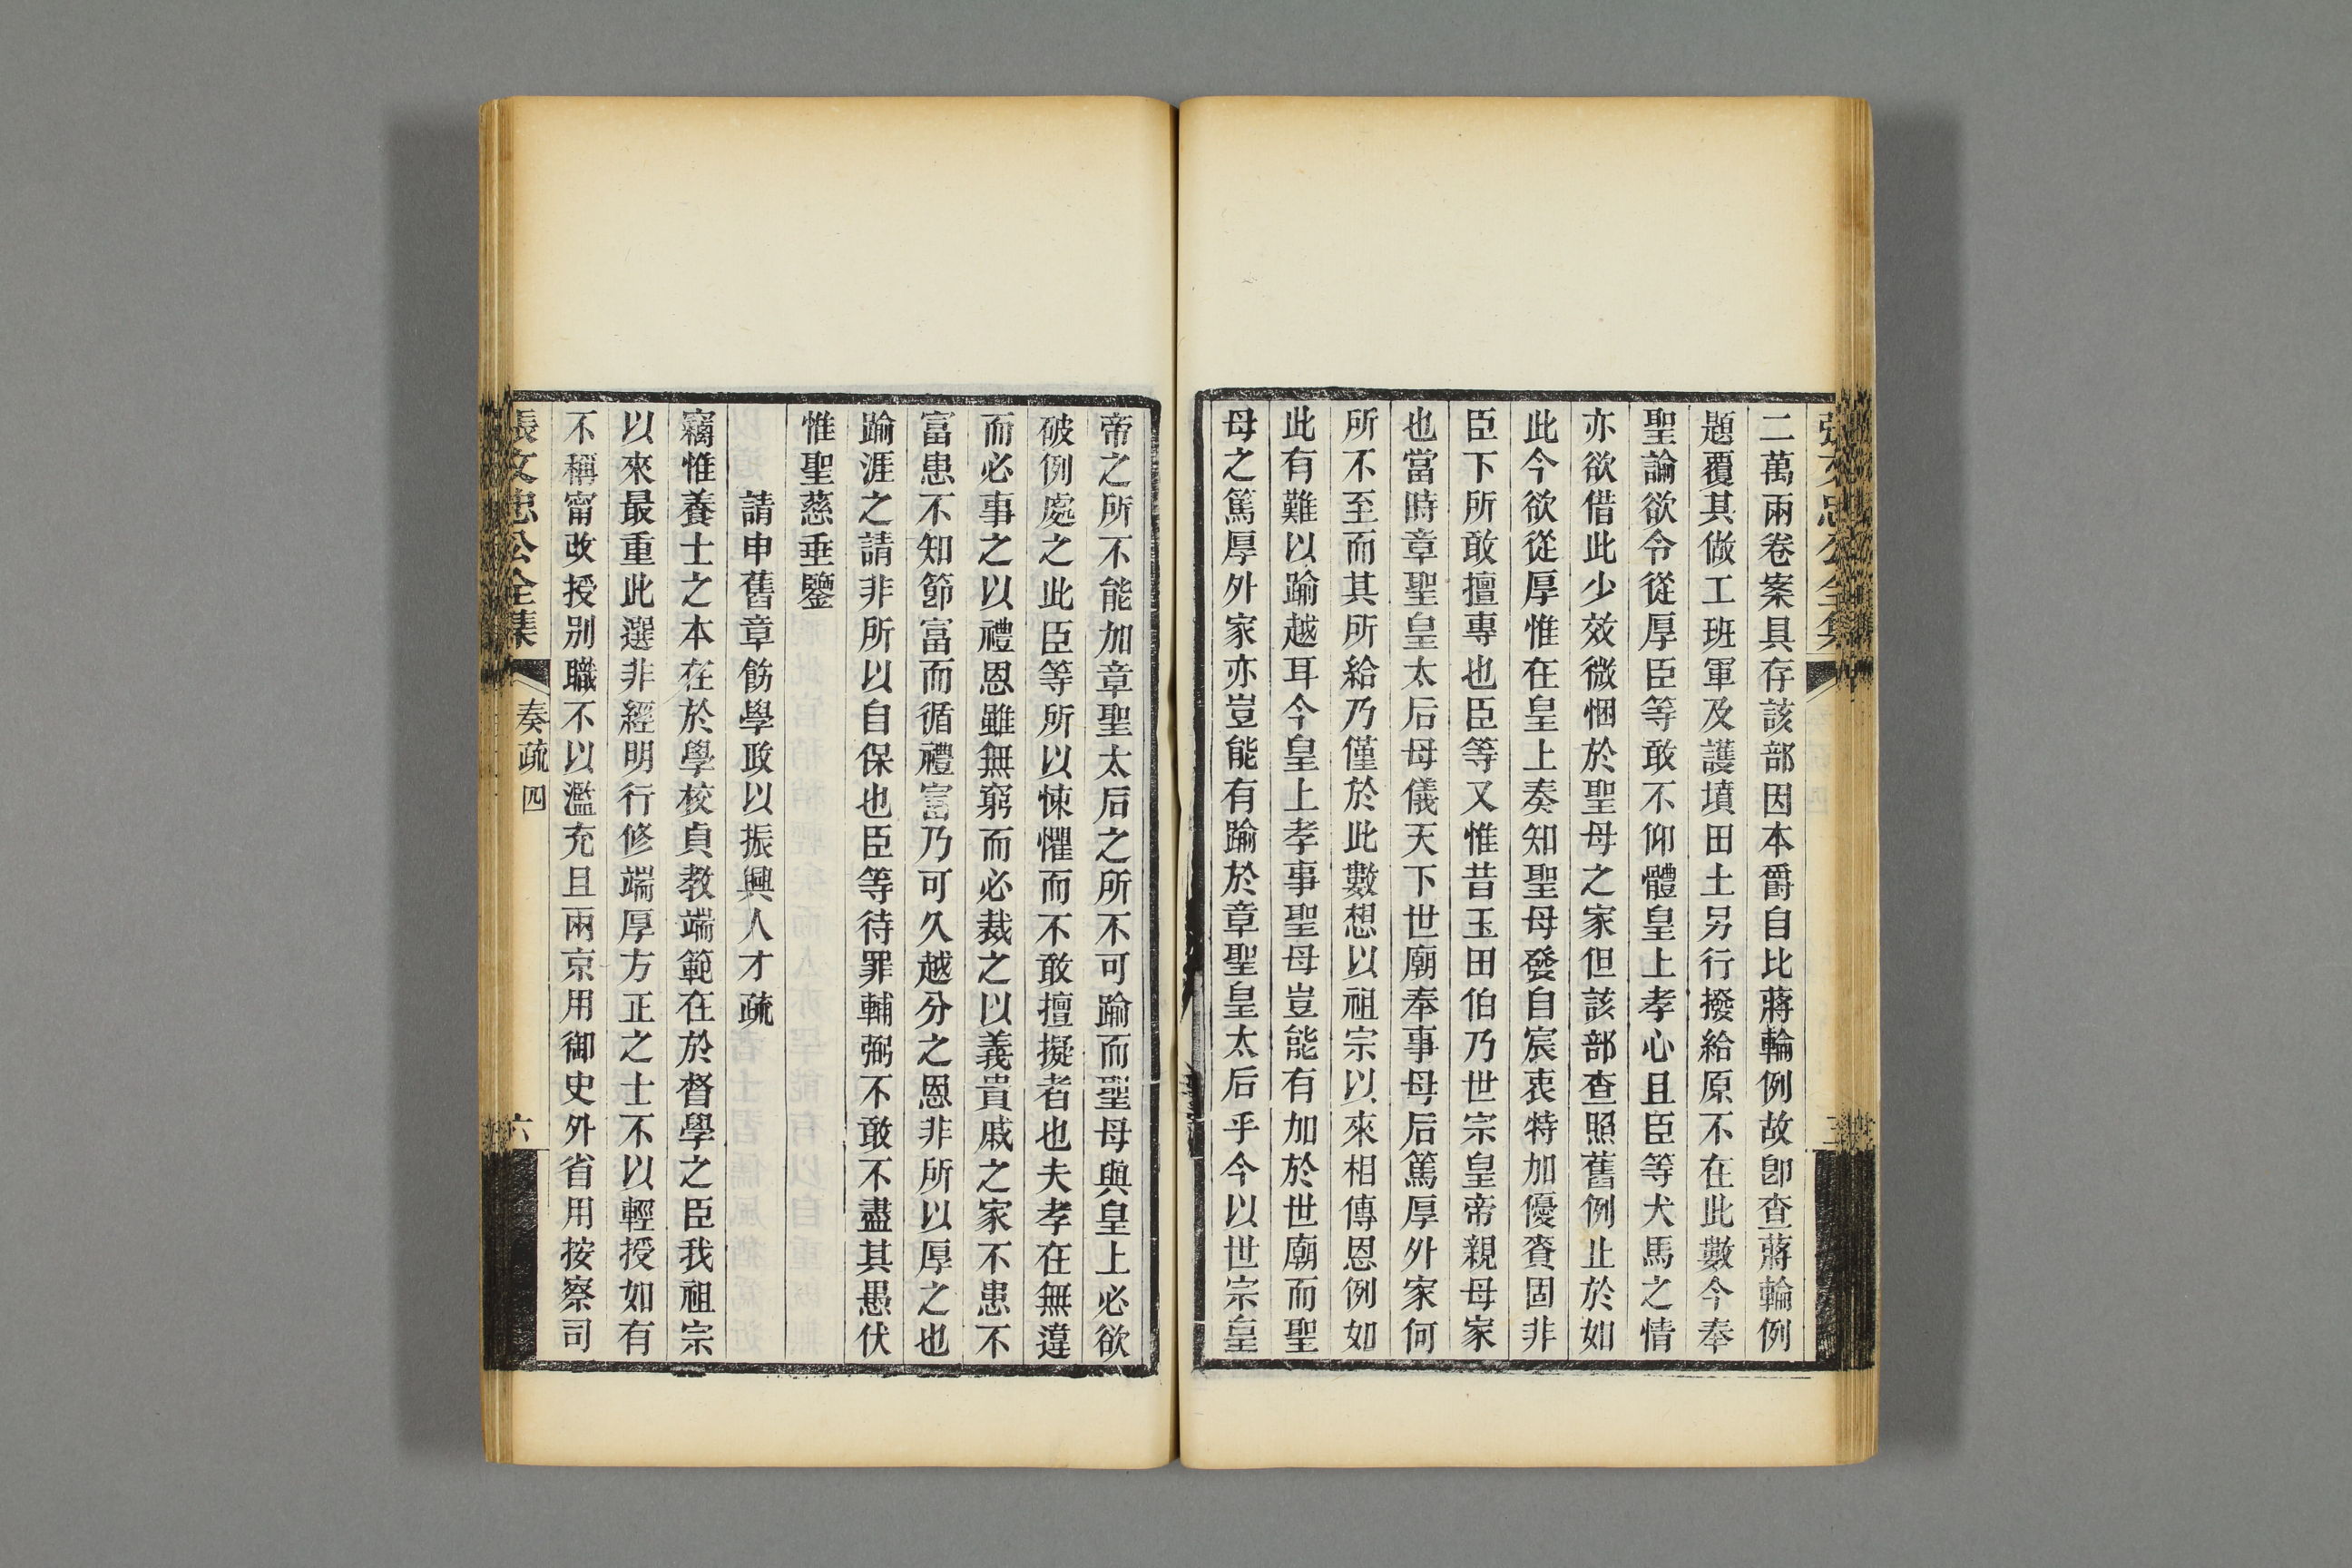 二萬兩卷案具存該部因本爵自比蔣輪例故卽查蔣輪例
題覆其做工班軍及護墳田土另行撥給原不在此數今奉
聖諭欲令從厚臣等敢不仰體皇上孝心且臣等犬馬之情
亦欲借此少效微悃於聖母之家但該部查照舊例止於如
此今欲從厚惟在皇上奏知聖母發自宸衷特加優賚固非
臣下所敢擅專也臣等又惟昔玉田伯乃世宗皇帝親母家
也當時章聖皇太后母儀天下世廟奉事母后篤厚外家何
所不至而其所給乃僅於此數想以祖宗以來相傳恩例如
此有難以踰越耳今皇上孝事聖母豈能有加於世廟而聖
母之篤厚外家亦豈能有踰於章聖皇太后乎今以世宗皇
帝之所不能加章聖太后之所不可踰而聖母與皇上必欲
破例處之此臣等所以悚懼而不敢擅擬者也夫孝在無違
而必事之以禮恩雖無窮而必裁之以義貴戚之家不患不
富患不知節富而循禮富乃可久越分之恩非所以厚之也
踰涯之請非所以自保也臣等待罪輔弼不敢不盡其愚伏
惟聖慈垂鑒
請申舊章飭學政以振興人才疏
竊惟養士之本在於學校貞教端範在於督學之臣我祖宗
以來最重此選非經明行修端厚方正之士不以輕授如有
不稱甯改授別職不以濫充且兩京用御史外省用按察司
張文忠公全集 奏疏四 六